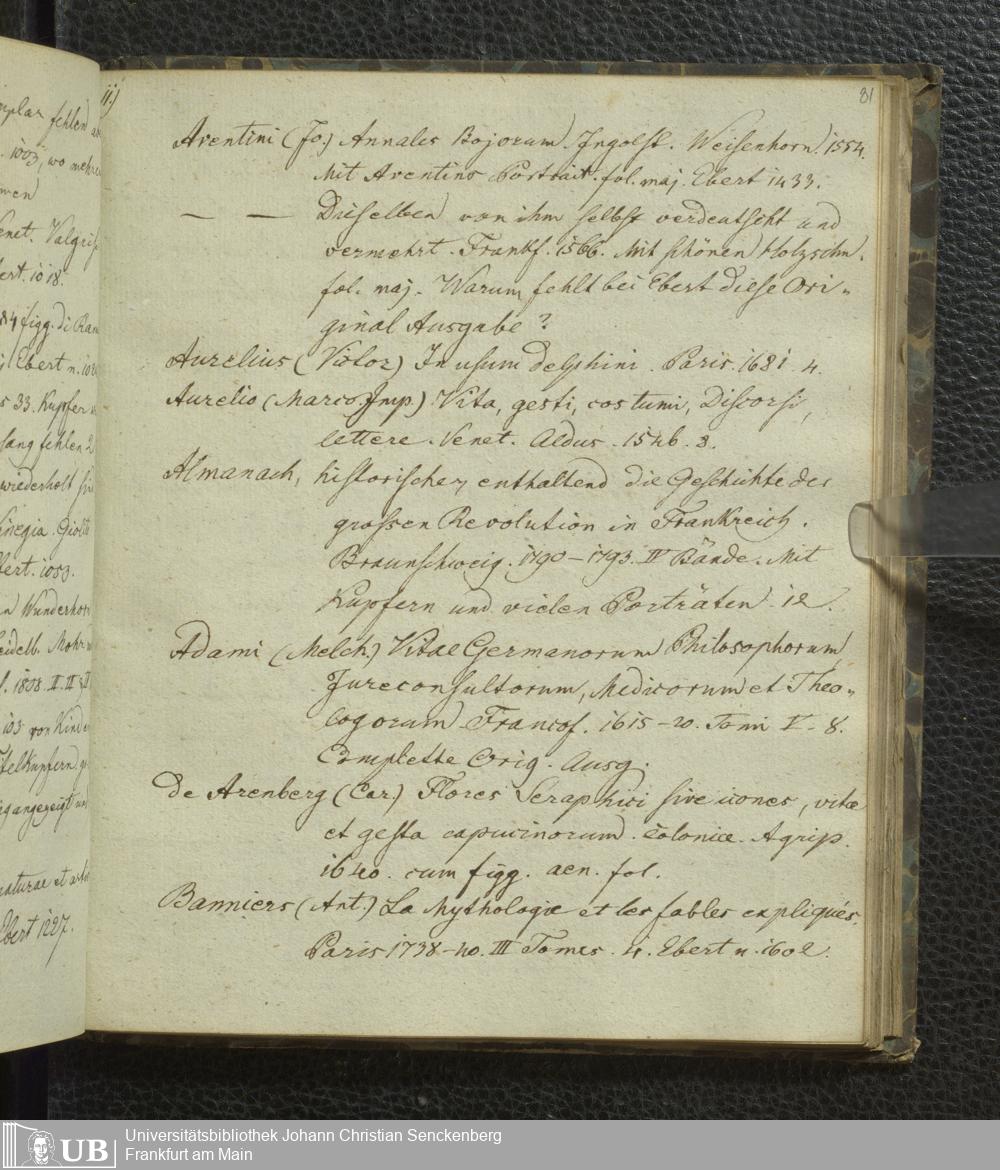 mplar fehlen
1003, wo mehre
men
enet. Valgris
ert. 1018.
84 figg. di
Ebert n.
33. Kupfer
fang fehlen 2
wiederholt
Giolit
ert. 1053.
n Wunderhorn
eidelb. Mohr
1808. II. III
103 von Kinde
telkupfern
angezeigt und
naturae et
Ebert 1227.
81
Aventini (Jo.) Annales Bojorum. Ingolst. Weisenhorn. 1554.
Mit Aventins Portrait. fol. maj. Ebert 1433.
— — Dieselben von ihm selbst verdeutscht und
vermehrt. Frankf. 1566. Mit schönen Holzschn.
fol. maj. Warum fehlt bei Ebert diese Ori„
ginal Ausgabe?
Aurelius (Victor) In usum delphini. Paris. 1681. 4.
Aurelio (Marco Imp.) Vita, gesti, costumi, Discorsi,
lettere. Venet. Aldus. 1546. 8.
Almanach, historischer, enthaltend die Geschichte der
grossen Revolution in Frankreich.
Braunschweig. 1790–1793. IV Bände. Mit
Kupfern und vielen Porträten. 12.
Adami (Melch.) Vitae Germanorum Philosophorum
Jureconsultorum, Medicorum et Theo„
logorum. Francof. 1615–20. Tomi V. 8.
Complette Orig. Ausg.
De Arenberg (Car.) Flores Seraphici sive icones, vitæ
et gesta capucinorum. Coloniæ. Agrip.
1640. cum figg. aen. fol.
Banniers (Ant.) La Mythologie et les fables expliqués.
Paris 1738–40. III Tomes. 4. Ebert n. 1602.
UB
Universitätsbibliothek Johann Christian Senckenberg
Frankfurt am Main